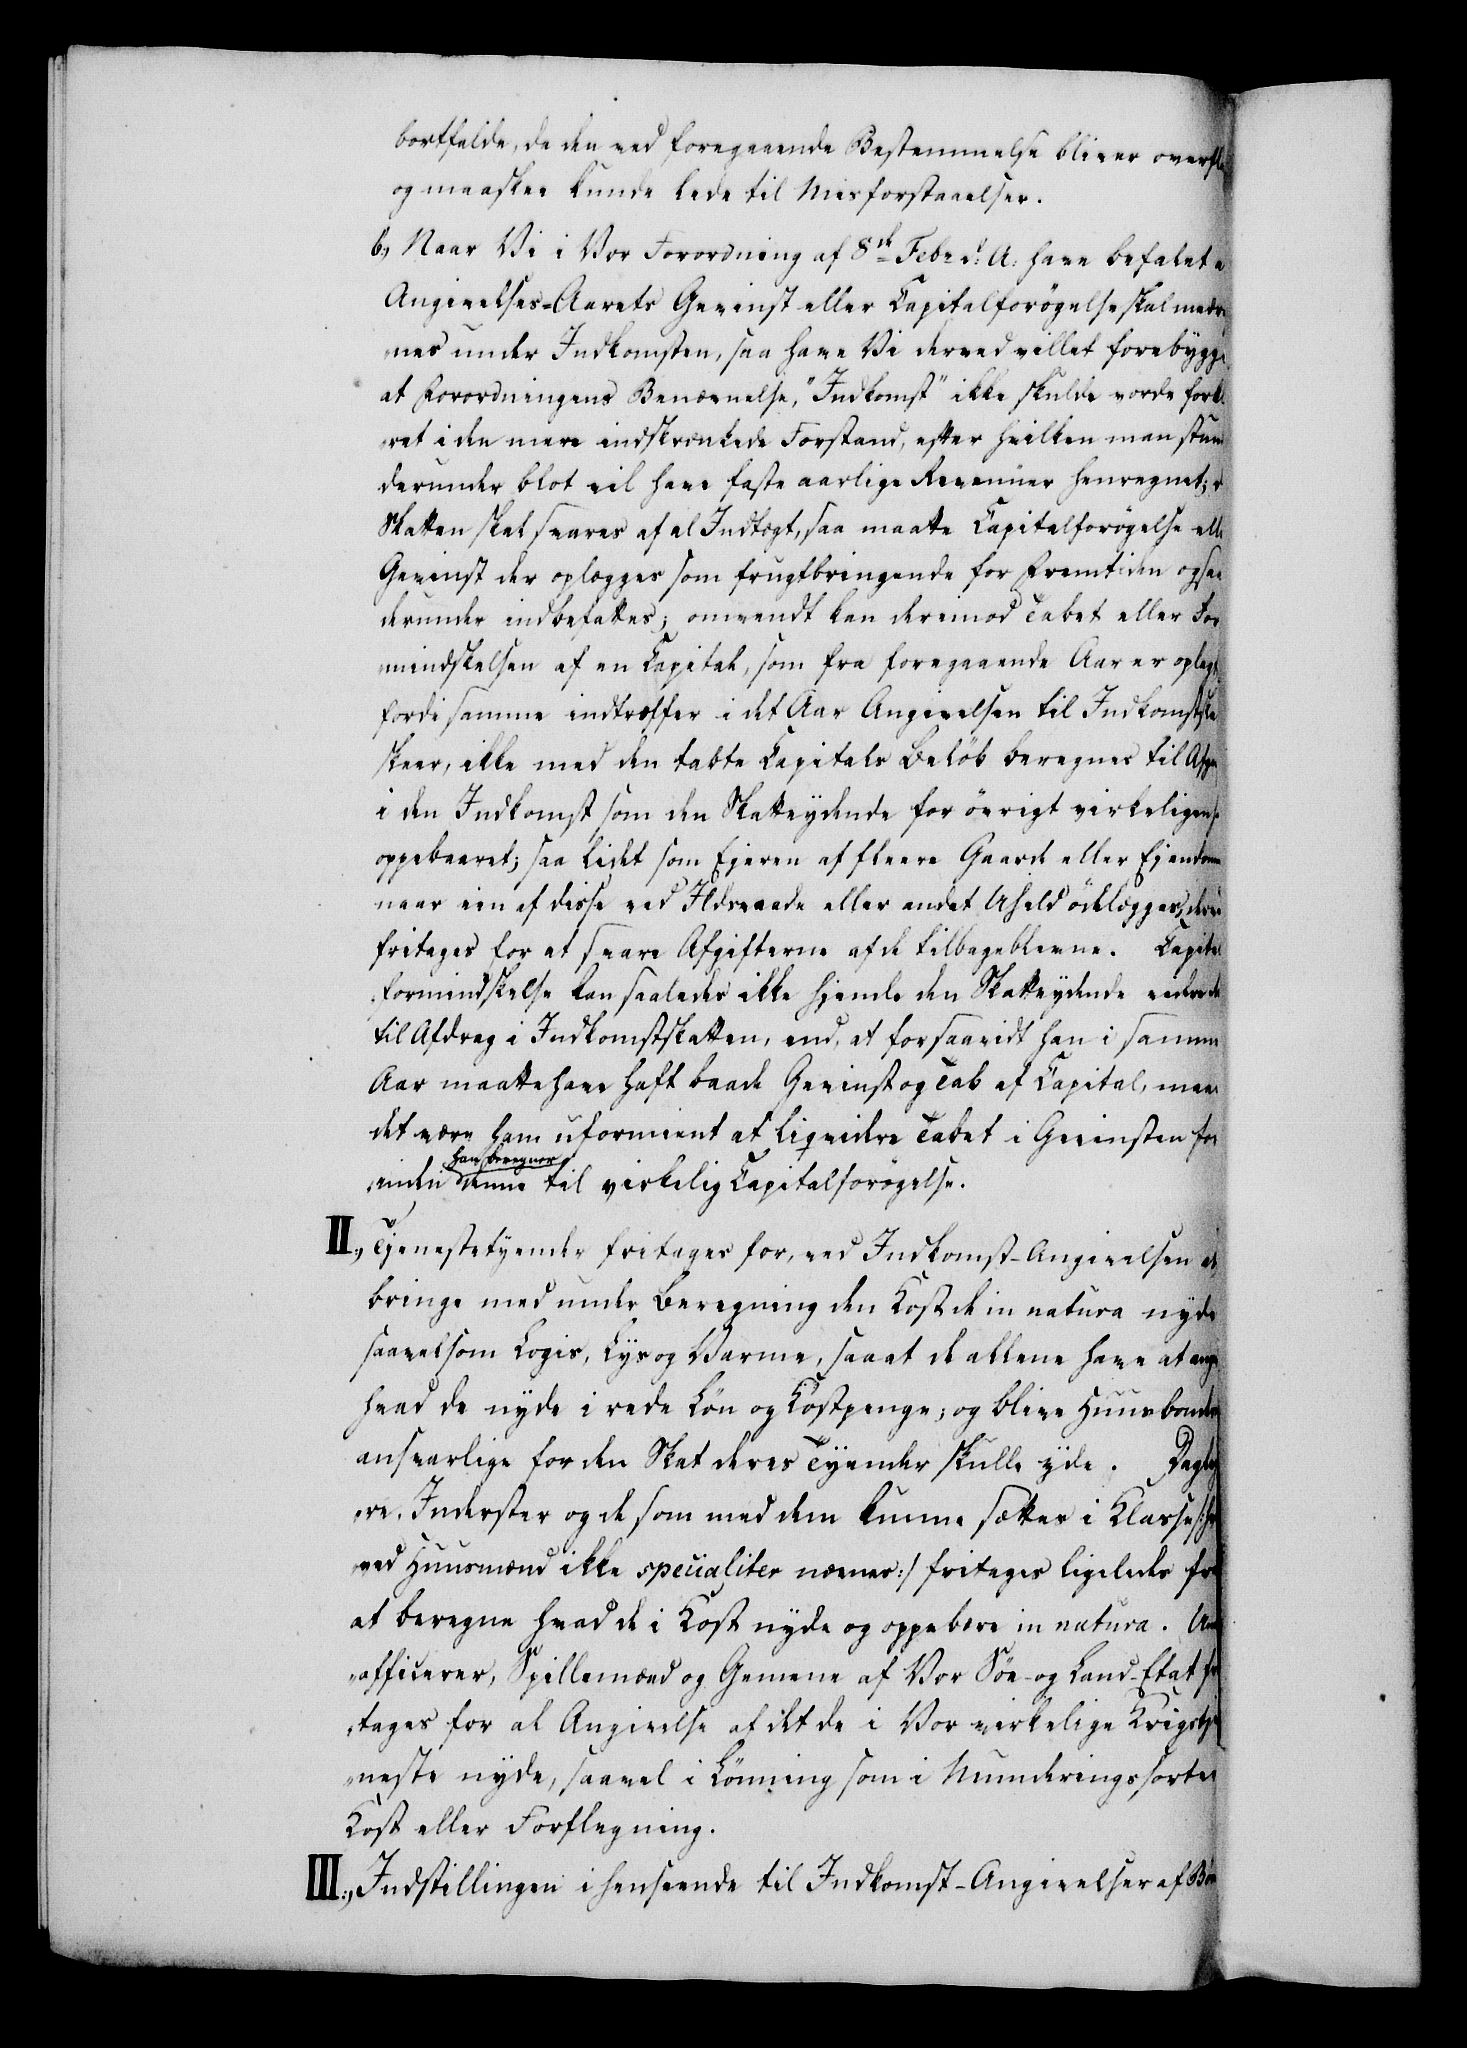 bortfalde, da den ved foregaaende Bestemmelse bliver overflø
og maaskee kunde lede til Misforstaaelser.
b, Naar Vi i Vor Forordning af 8de Febr d: A: have befalet a
Angivelses-Aarets Gevinst eller Capitalforøgelse skal medreg
nes under Indkomsten, saa have Vi derved villet forebygge
at Forordningens Benævnelse, "Indkomst" ikke skulde vorde forkl
ret i den mere indskrænkede Forstand, efter hvilken man stun
derunder blot vil have faste aarlige Revenüer henregnet;
Skatten skal svares af al Indtægt, saa maatte Capitalforøgelse elle
Gevinst der oplægges som frugtbringende for Fremtiden ogsaa
derunder indbefattes; omvendt kan derimod Tabet eller For
mindskelsen af en Capital, som fra foregaaende Aar er oplagt,
fordi samme indtræffer i det Aar Angivelsen til Indkomstska
skeer, ikke med den tabte Capitals Beløb beregnes til Afga
i den Indkomst som den Skatteydende for øvrigt virkeligen
oppebaaret; saa lidet som Ejeren af fleere Gaarde eller Ejendomme
naar een af disse ved Ildsvaade eller andet Uheld ødelægges, derved
fritages for at svare Afgifterne af de tilbageblevne. Capital
formindskelse kan saaledes ikke hjemle den Skatteydende
til Afdrag i Indkomstskatten, end, at forsaavidt han i samme
Aar maatte have haft baade Gevinst og Tab af Capital, maae
det være ham uformeent at liqvidere Tabet i Gevinsten for
han beregner
inden denne til virkelig Capitalforøgelse.
II., Tjenestetyender fritages for, ved Indkomst-Angivelsen at
bringe med under Beregning den Kost de in natura nyde
saavelsom Logis, Lys og Varme, saaat de allene have at ang
hvad de nyde i rede Løn og Kostpenge; og blive Huusbonde
ansvarlige for den Skat deres Tyender skulle yde. Dagley
re, Inderster og de som med dem kunne sættes i Klasse /:h
ved Huusmænd ikke specialiter nævnes:/ fritages ligeledes for
at beregne hvad de i Kost nyde og oppebære in natura. Un
officerer, Spillemænd og Gemene af Vor Søe- og Land-Etat fr
tages for al Angivelse af det de i Vor virkelige Krigstje
neste nyde, saavel i Lønning som i Munderingssorter
Kost eller Forflegning.
III., Indstillingen i henseende til Indkomst-Angivelser af Bøn